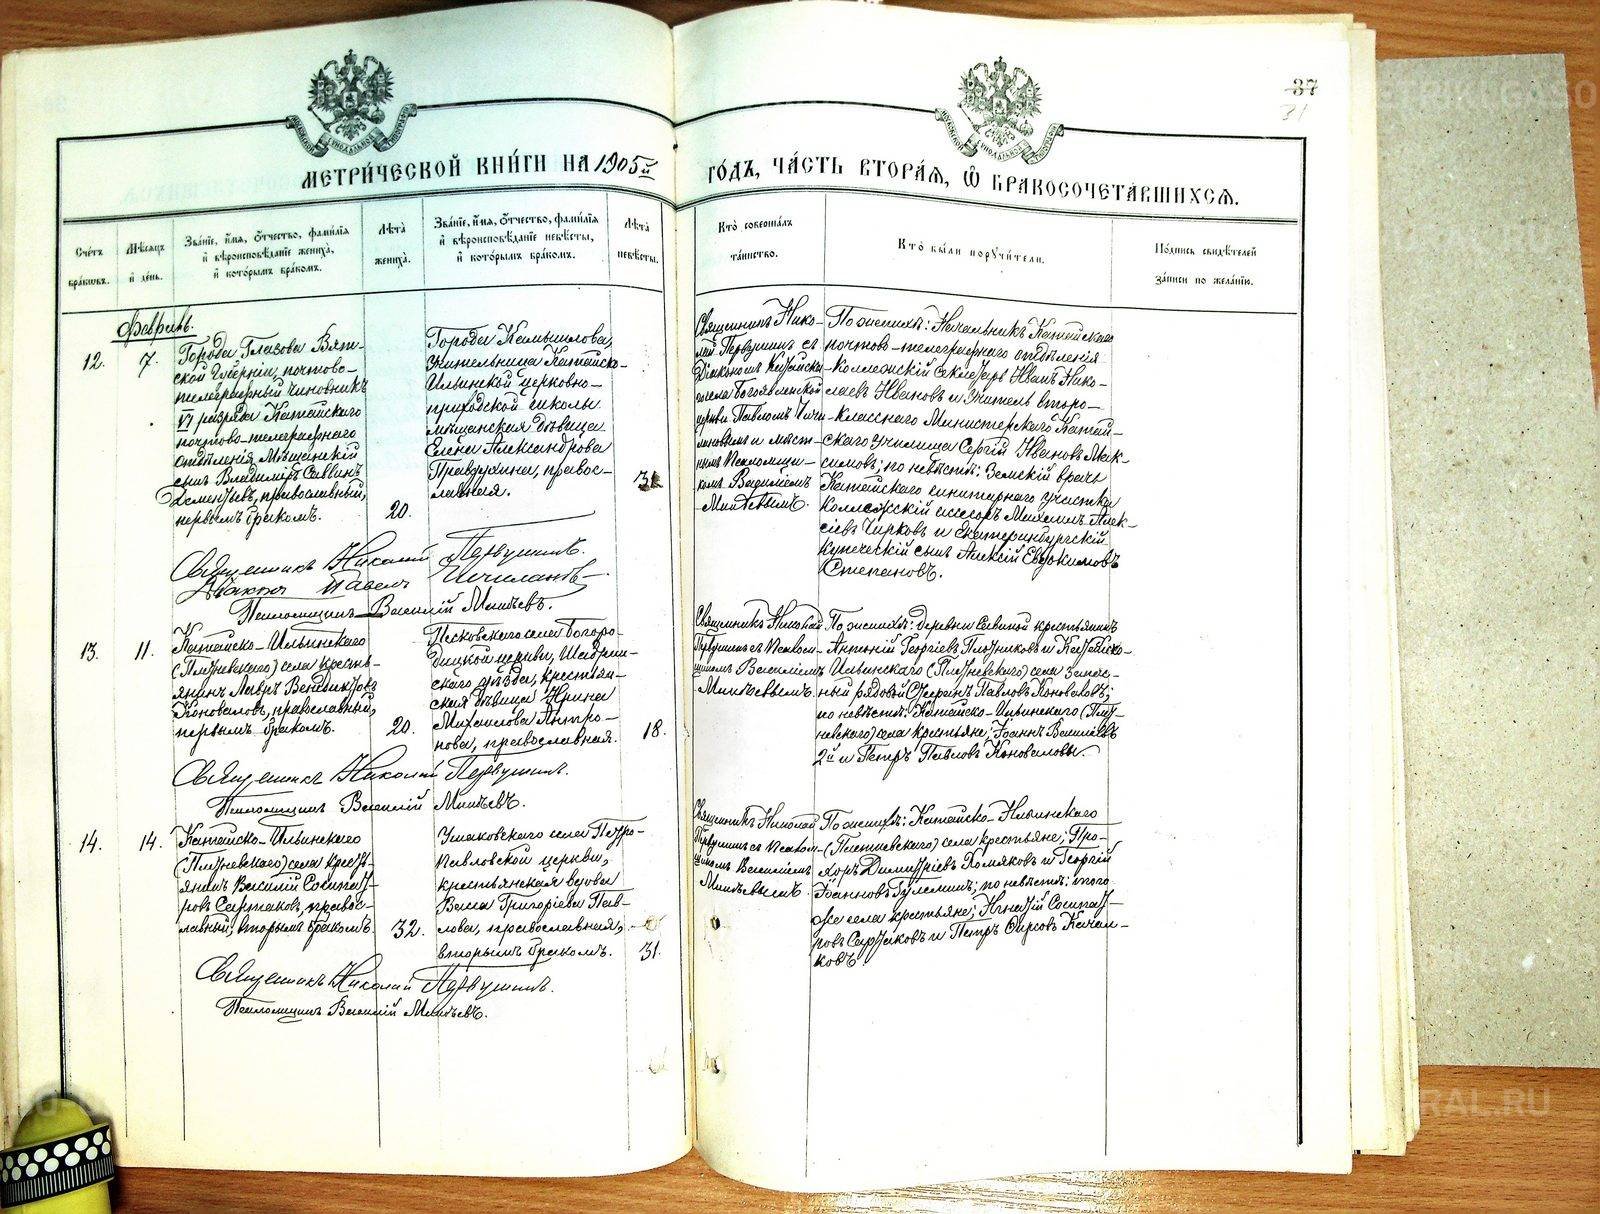 37
31
МЕТРИЧЕСКОЙ КНИГИ НА 1905й
ГОДЪ, ЧАСТЬ ВТОРАЯ, Ѡ БРАКОСОЧЕТАВШИХСЯ.
Счетъ браковъ.
Мѣсяцъ и день.
Званіе, имя, отчество, фамилія
и вѣроисповѣданіе жениха,
и которымъ бракомъ.
Лѣта
жениха.
Званіе, имя, отчество, фамилія
и вѣроисповѣданіе невѣсты,
и которымъ бракомъ.
Лѣта
невѣсты.
Кто совершалъ
таинство.
Кто были поручители.
Подпись свидѣтелей
записи по желанію.
Февраль.
12.
7.
Города Глазова Вят-
ской Губерніи, почтово-
телеграфный чиновникъ
VI разряда Катайскаго
почтово-телеграфнаго
отдѣленія, Мѣщанскій
сынъ Владиміръ Саввинъ
Дементьевъ, православный,
первымъ бракомъ.
20.
Города Камышлова,
учительница Катайско-
Ильинской церковно-
приходской школы
мѣщанская дѣвица
Елена Александрова
Правдухина, правос-
лавная.
Священникъ Нико-
лай Первушинъ съ
Діакономъ Катайска-
го села Богоявленской
церкви Павломъ Чичи-
лановымъ и мѣст-
нымъ Псаломщи-
комъ Василіемъ
Минѣевымъ.
По женихѣ: Начальникъ Катайскаго
почтово-телеграфнаго отдѣленія
Коллежскій Секретарь Иванъ Нико-
лаевъ Ивановъ и Учитель второ-
класснаго Министерскаго Катай-
скаго училища Сергій Ивановъ Мак-
симовъ; по невѣстѣ: Земскій врачъ
Катайскаго санитарнаго участка
коллежскій ассесоръ Михаилъ Алек-
сіевъ Чирковъ и Екатеринбургскій
купеческій сынъ Алексій Евдокимовъ
Степановъ.
Священникъ Николай Первушинъ.
Діаконъ Павелъ Чичилановъ
Псаломщикъ Василій Минѣевъ.
13.
11.
Катайско-Ильинскаго
(Плотневскаго) села кресть-
янинъ Лавръ Венедиктовъ
Коноваловъ, православный,
первымъ бракомъ.
20.
Песковскаго села Богоро-
дицкой церкви, Шадрин-
скаго уѣзда, крестьян-
ская дѣвица Ирина
Михайлова Антро-
пова, православная.
18.
Священникъ Николай
Первушинъ съ Псалом-
щикомъ Василіемъ
Минѣевымъ.
По женихѣ: деревни Савиной крестьянинъ
Антоній Георгіевъ Плотниковъ и Катайско-
Ильинскаго (Плотневскаго) села запас-
ный рядовой Павловъ Коноваловъ;
по невѣстѣ: Катайско-Ильинскаго (Плот-
невскаго) села крестьяне; Іоаннъ Василіевъ
2й и Петръ Павловъ Коноваловы.
Священникъ Николай Первушинъ.
Псаломщикъ Василій Минѣевъ.
14.
14.
Катайско-Ильинскаго
(Плотневскаго) села кресть-
янинъ Василій Сосипат-
ровъ Сартаковъ, правос-
лавный, вторымъ бракомъ.
32.
Ушаковскаго села Петро-
Павловской церкви,
крестьянская вдова
Васса Григоріева Пав-
лова, православная,
вторымъ бракомъ.
31.
Священникъ Николай
Первушинъ съ Псалом-
щикомъ Василіемъ
Минѣевымъ.
По женихѣ: Катайско-Ильинскаго
(Плотневскаго) села крестьяне; Про-
хоръ Димитріевъ Хомяковъ и Георгій
Іоанновъ; по невѣстѣ: того
же села крестьяне; Игнатій Сосипат-
ровъ Сартаковъ и Петръ Качал-
ковъ.
Священникъ Николай Первушинъ.
Псаломщикъ Василій Минѣевъ.